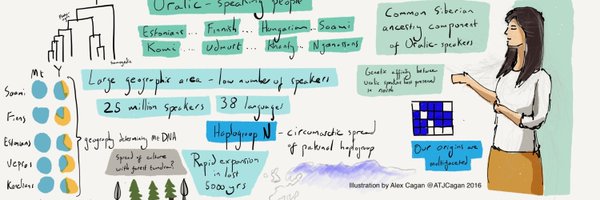 Uralic-speaking people
Estonians ... Finnish ... Hungarian ... Saami
Komi ... Udmurt ... Khanty ... Nganasans
Large geographic area - low number of speakers
25 million speakers
38 languages
Mt Y
Saami
Finns
Estonians
Vepsas
Karelians
geography determining mt DNA
Spread of culture
with forest tundra?
Haplogroup N - circumarctic spread
of paternal haplogroup
Rapid expansion
in last
5000yrs
Common Siberian
ancestry component
of Uralic-speakers
Genetic affinity between
Uralic speakers best preserved
in north
Our origins are
multifaceted
Illustration by Alex Cagan @ATJCagan 2016